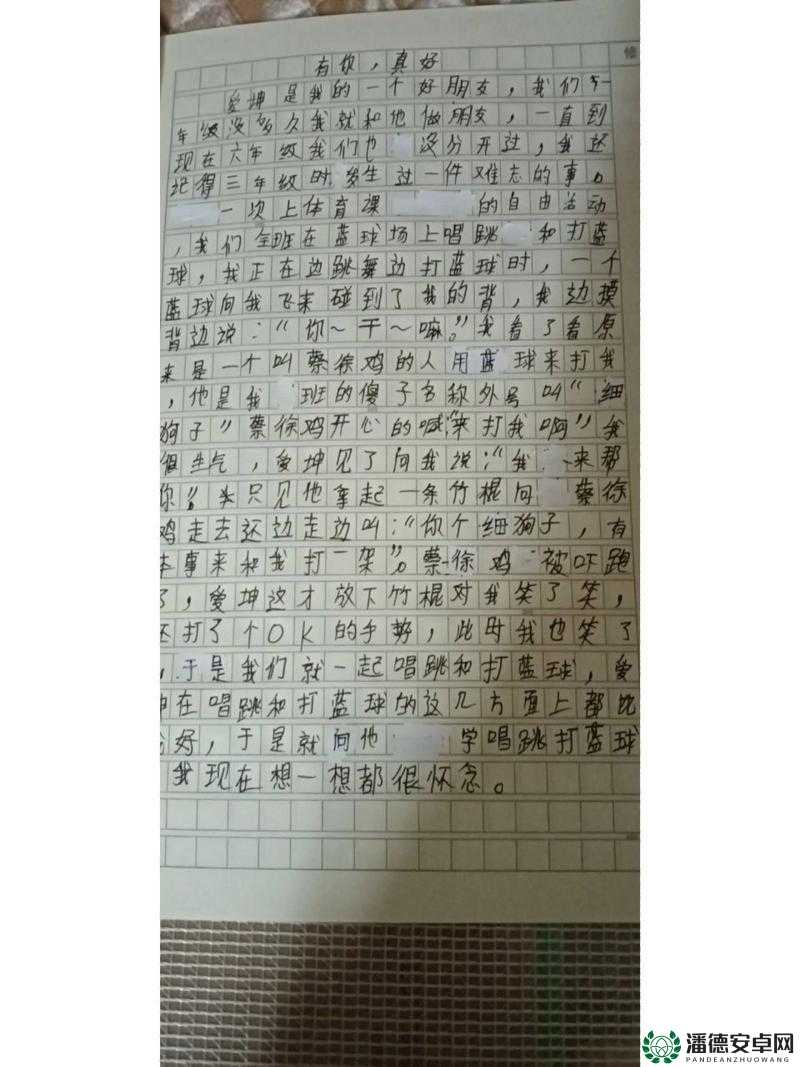 有你，真好
爱坤是我的一个好朋友，我们下一
年级没多久我就和他做朋友，一直到
现在六年级我们也没分开过，我还
记得三年级时发生过一件难忘的事。
一次上体育课的自由活动
，我们全班在蓝球场上唱跳和打蓝
球，我正在边跳舞边打蓝球时，一个
蓝球向我飞来碰到了我的背，我边摸
背边说：“你～干～嘛。”我看了看原
来是一个叫蔡徐鸡的人用蓝球来打我
，他是我班的傻子名称外号叫“细
狗子”蔡徐鸡开心的喊“来打我啊”我
很生气，爱坤见了向我说：“我来帮
你。”只见他拿起一条竹棍向蔡徐
鸡走去还边走边叫：“你个细狗子，有
本事来和我打一架”。蔡徐鸡被吓跑
了，爱坤这才放下竹棍对我笑了笑，
还打了个OK的手势，此时我也笑了
，于是我们就一起唱跳和打蓝球，爱
坤在唱跳和打蓝球的这几方面上都比
我好，于是就向他学唱跳打蓝球
我现在想一想都很怀念。
潘德安卓网
PANDEANZHUOWANG